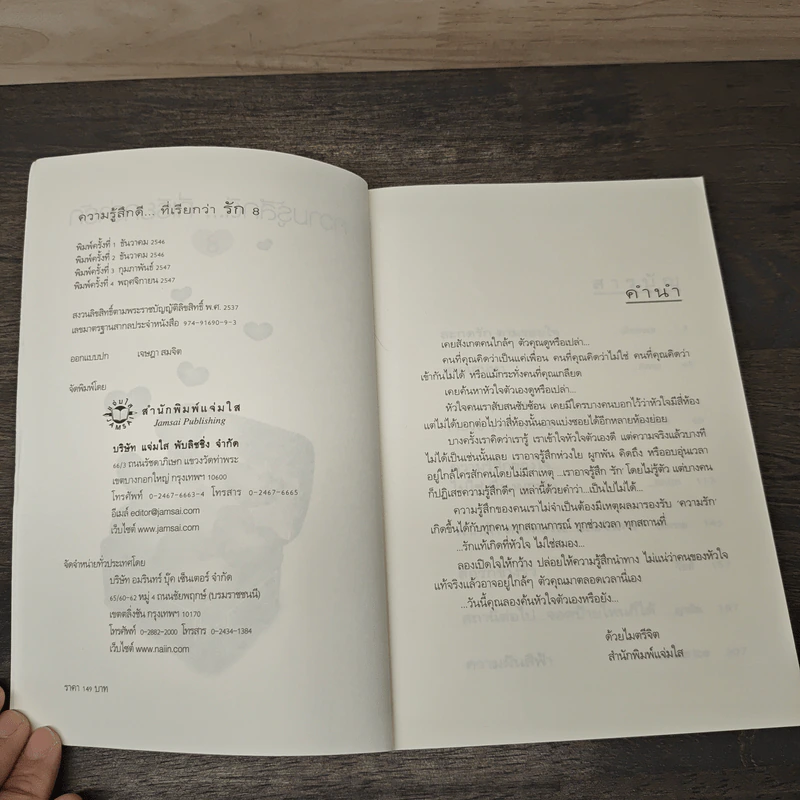 ความรู้สึกดี... ที่เรียกว่า รัก 8
พิมพ์ครั้งที่ 1 ธันวาคม 2546
พิมพ์ครั้งที่ 2 ธันวาคม 2546
พิมพ์ครั้งที่ 3 กุมภาพันธ์ 2547
พิมพ์ครั้งที่ 4 พฤศจิกายน 2547
สงวนลิขสิทธิ์ตามพระราชบัญญัติลิขสิทธิ์ พ.ศ. 2537
เลขมาตรฐานสากลประจำหนังสือ 974-91690-9-3
ออกแบบปก เจษฎา สมจิต
จัดพิมพ์โดย
สำนักพิมพ์แจ่มใส
Jamsai Publishing
บริษัท แจ่มใส พับลิชชิ่ง จำกัด
66/3 ถนนรัชดาภิเษก แขวงวัดท่าพระ
เขตบางกอกใหญ่ กรุงเทพฯ 10600
โทรศัพท์ 0-2467-6663-4 โทรสาร 0-2467-6665
อีเมล์ editor@jamsai.com
เว็บไซต์ www.jamsai.com
จัดจำหน่ายทั่วประเทศโดย
บริษัท อมรินทร์ บุ๊ค เซ็นเตอร์ จำกัด
65/60-62 หมู่ 4 ถนนชัยพฤกษ์ (บรมราชชนนี)
เขตตลิ่งชัน กรุงเทพฯ 10170
โทรศัพท์ 0-2882-2000 โทรสาร 0-2434-1384
เว็บไซต์ www.naiin.com
ราคา 149 บาท
คำนำ
เคยสังเกตคนใกล้ๆ ตัวคุณดูหรือเปล่า...
คนที่คุณคิดว่าเป็นแค่เพื่อน คนที่คุณคิดว่าไม่ใช่ คนที่คุณคิดว่า
เข้ากันไม่ได้ หรือแม้กระทั่งคนที่คุณเกลียด
เคยค้นหาหัวใจตัวเองดูหรือเปล่า...
หัวใจคนเราสลับสนซับซ้อน เคยมีใครบางคนบอกไว้ว่าหัวใจมีสี่ห้อง
แต่ไม่ได้บอกต่อไปว่าสี่ห้องนั้นอาจแบ่งซอยได้อีกหลายห้องย่อย
บางครั้งเราคิดว่าเรารู้ เราเข้าใจหัวใจตัวเองดี แต่ความจริงแล้วบางที
ไม่ได้เป็นเช่นนั้นเลย เราอาจรู้สึกห่วงใย ผูกพัน คิดถึง หรืออบอุ่นเวลา
อยู่ใกล้ใครสักคนโดยไม่มีสาเหตุ ...เราอาจรู้สึก 'รัก' โดยไม่รู้ตัว แต่บางคน
ก็ปฏิเสธความรู้สึกดีๆ เหล่านี้ด้วยคำว่า...เป็นไปไม่ได้...
ความรู้สึกของคนเราไม่จำเป็นต้องมีเหตุผลมารองรับ 'ความรัก'
เกิดขึ้นได้กับทุกคน ทุกสถานการณ์ ทุกช่วงเวลา ทุกสถานที่
...รักแท้เกิดที่หัวใจ ไม่ใช่สมอง...
ลองเปิดใจให้กว้าง ปล่อยให้ความรู้สึกนำทาง ไม่แน่ว่าคนของหัวใจ
แท้จริงแล้วอาจอยู่ใกล้ๆ ตัวคุณมาตลอดเวลานี่เอง
...วันนี้คุณลองค้นหัวใจตัวเองหรือยัง...
ด้วยไมตรีจิต
สำนักพิมพ์แจ่มใส